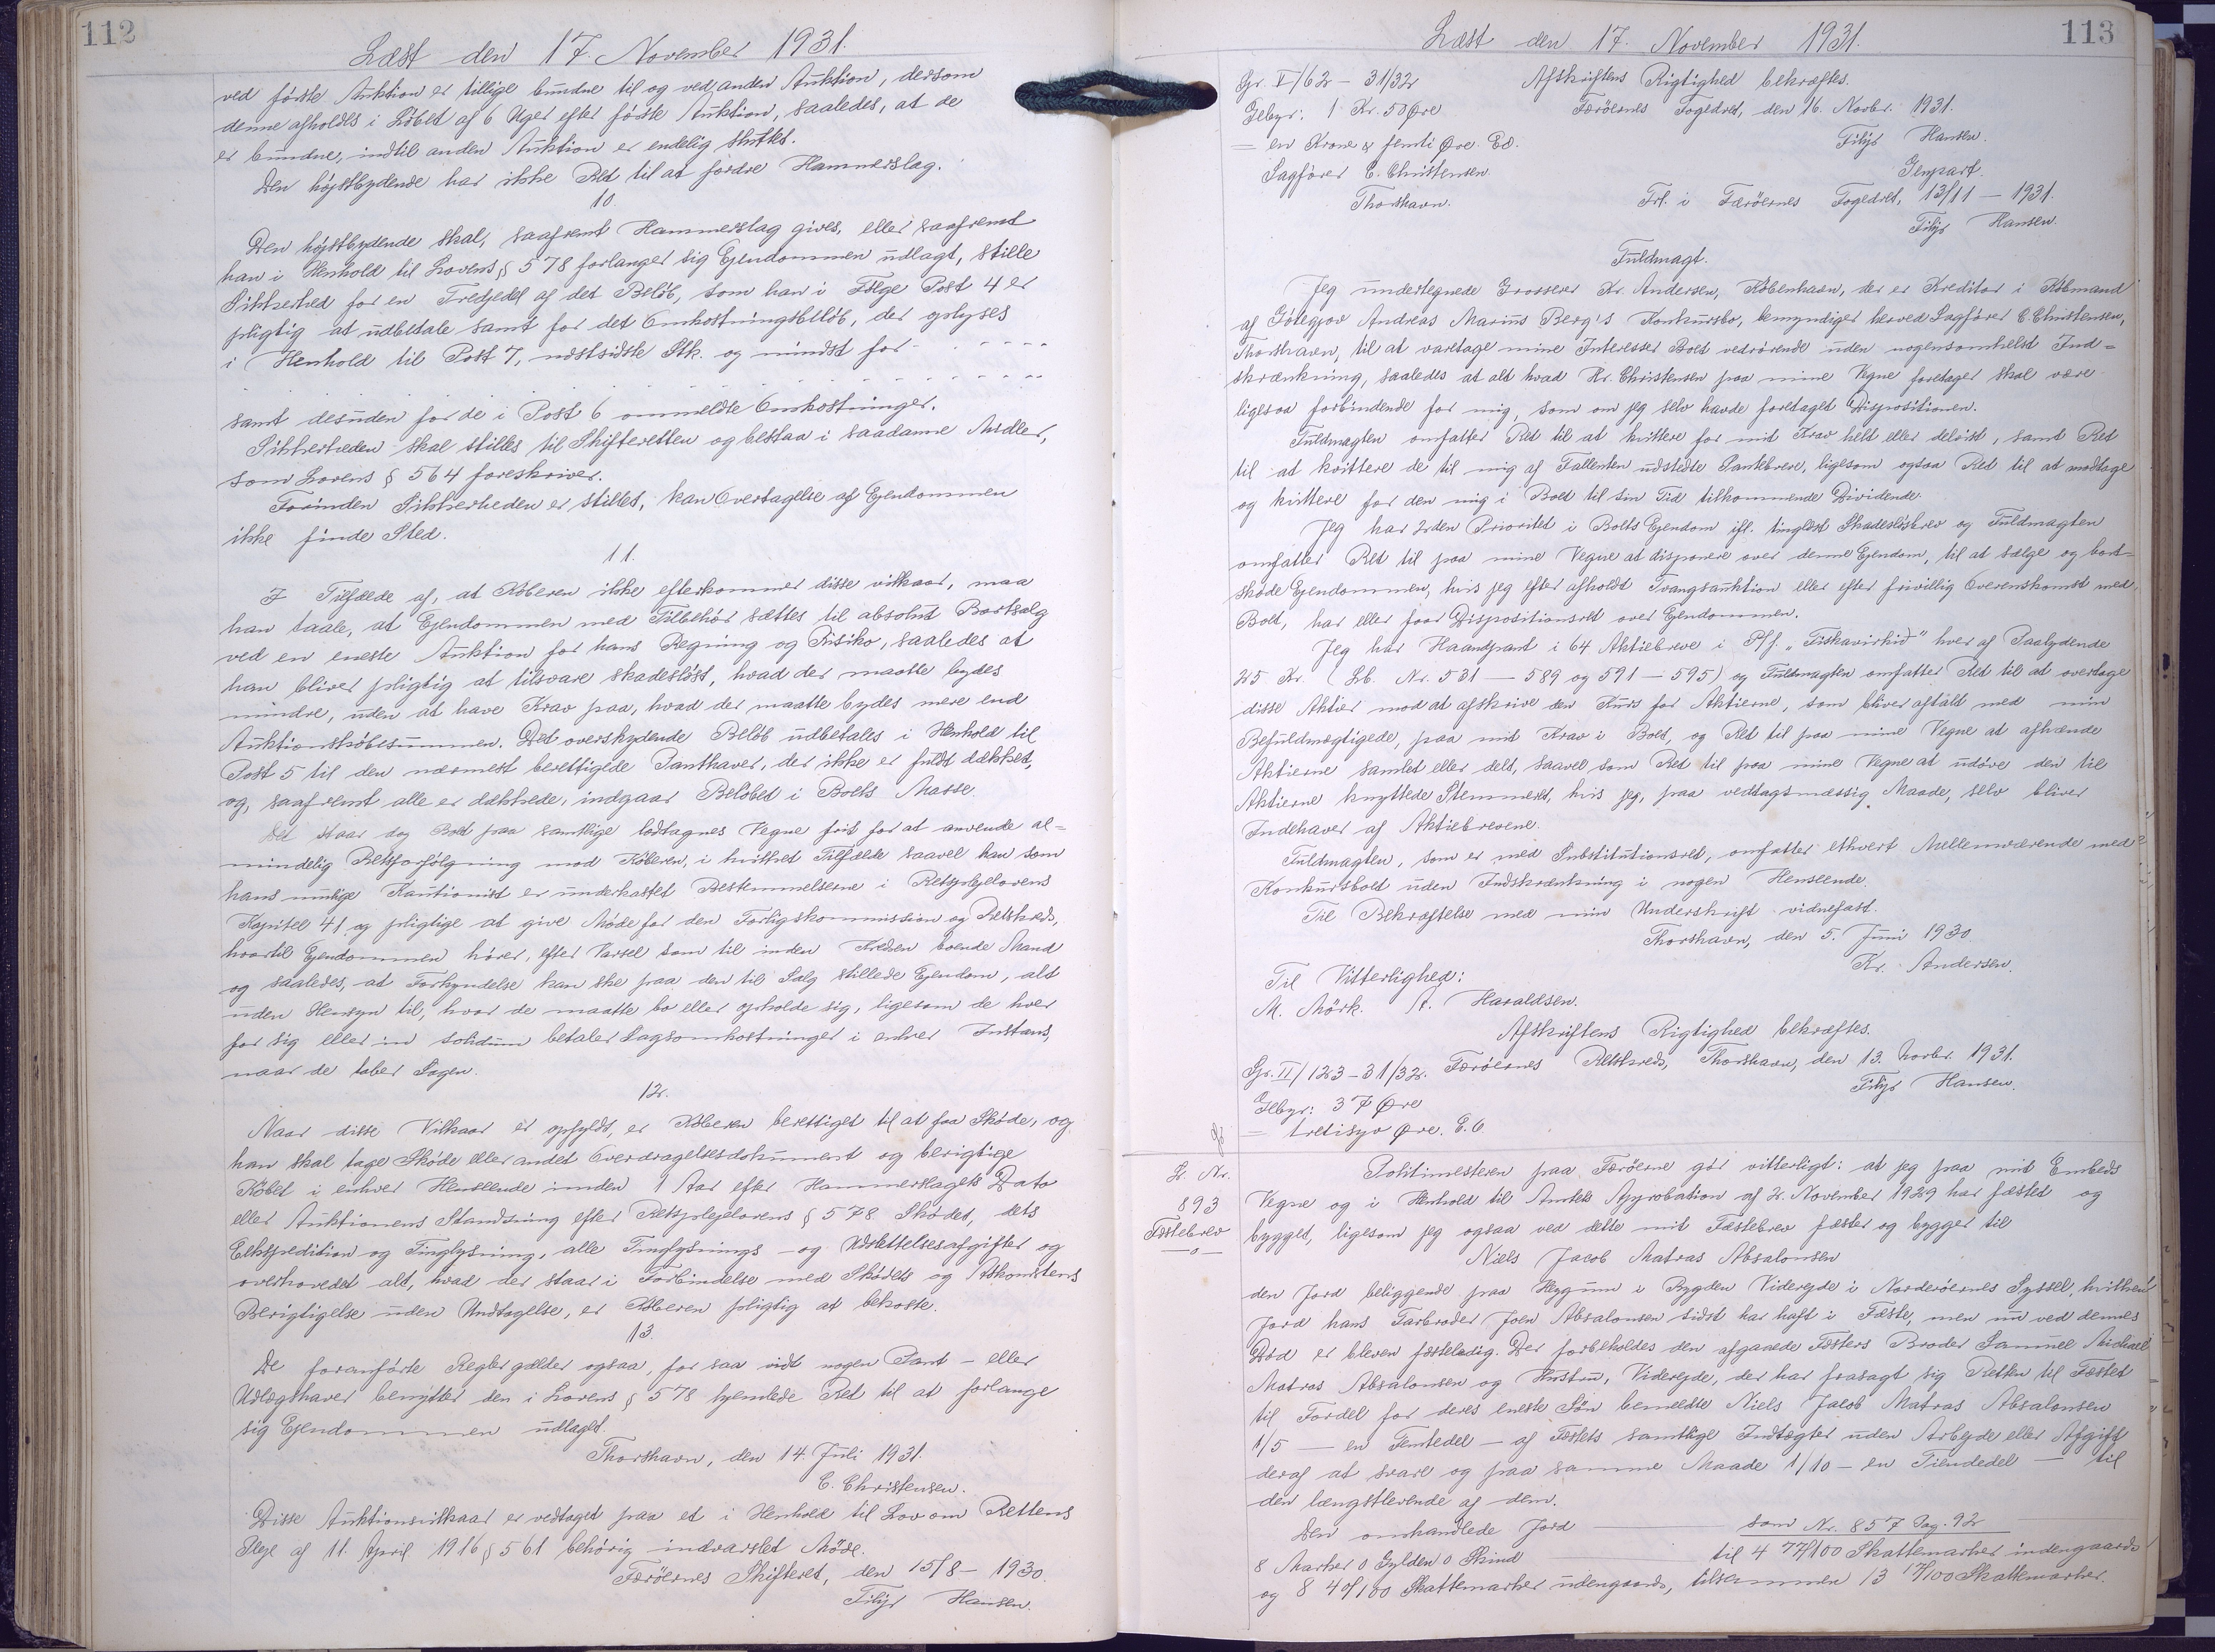 112
Læst den 17. November 1931.
ved første Auktion er tillige bundne til og ved anden Auktion, dersom
denne afholdes i Løbet af 6 Uger efter første Auktion, saaledes, at de
er bundne, indtil anden Auktion er endelig sluttet.
Den højstbydende har ikke Ret til at fordre Hammerslag.
10.
Den højstbydende skal, saafremt Hammerslag gives, eller saafremt
han i Henhold til Lovens § 578 forlanger sig Ejendommen udlagt, stille
Sikkerhed for en Tredjedel af det Beløb, som han i Følge Post 4 er
pligtig at udbetale samt for det Omkostningsbeløb, der oplyses
i Henhold til Post 7, næstsidste Stk. og mindst for - - - - - -
- - - - - - - - - - - - - - - -
samt desuden for de i Post 6 ommeldte Omkostninger.
Sikkerheden skal stilles til Skifteretten og bestaa i saadanne Midler,
som Lovens § 564 foreskriver.
Forinden Sikkerheden er stillet, kan Overtagelse af Ejendommen
ikke finde Sted.
11.
I Tilfælde af, at Køberen ikke efterkommer disse vilkaar, maa
han taale, at Ejendommen med Tilbehør sættes til absolut Bortsalg
ved en eneste Auktion for hans Regning og Risiko, saaledes at
han bliver pligtig at tilsvare skadesløst, hvad der maatte bydes
mindre, uden at have Krav paa, hvad der maatte bydes mere end
Auktionskøbesummen. Det overskydende Beløb udbetales i Henhold til
Post 5 til den nærmest berettigede Panthaver, der ikke er fuldt dækket,
og, saafremt alle er dækkede, indgaar Beløbet i Boets Masse.
Det staar dog Boet paa samtlige lodtagnes Vegne frit for at anvende al=
mindelig Retsforfølgning mod Køberen, i hvilket Tilfælde saavel han som
hans mulige Kautionist er underkastet Bestemmelserne i Retsplejelovens
Kapitel 41 og pligtige at give Møde for den Forligskommission og Retskreds,
hvortil Ejendommen hører, efter Varsel som til inden Kredsen boende Mand
og saaledes, at Forkyndelse kan ske paa den til Salg stillede Ejendom, alt
uden Hensyn til, hvor de maatte bo eller opholde sig, ligesom de hver
for sig eller in solidum betaler Sagsomkostninger i enhver Instans,
naar de taber Sagen.
12.
Naar disse Vilkaar er opfyldt, er Køberen berettiget til at faa Skøde, og
han skal tage Skøde eller andet Overdragelsesdokument og berigtige
Købet i enhver Henseende inden 1 Aar efter Hammerslagets Dato
eller Auktionens Standsning efter Retsplejelovens § 578. Skødet, dets
Ekspedition og Tinglysning, alle Tinglysnings- og Udslettelsesafgifter og
overhovedet alt, hvad der staar i Forbindelse med Skødets og Adkomstens
Berigtigelse uden Undtagelse, er Køberen pligtig at bekoste.
13.
De foranførte Regler gælder ogsaa, for saa vidt nogen Pant- eller
Udlægshaver benytter den i Lovens § 578 hjemlede Ret til at forlange
sig Ejendommen udlagt.
Thorshavn, den 14. Juli 1931.
C. Christensen.
Disse Auktionsvilkaar er vedtaget paa et i Henhold til Lov om Rettens
Pleje af 11. April 1916 § 561 behørig indvarslet Møde.
Færöernes Skifteret, den 15/8 - 1930.
Filip Hansen.
113
Læst den 17. November 1931.
Gr. I/62 - 31/32
Gebyr: 1 Kr. 50 Øre
= en Krone & femti Øre. Ed.
Sagfører C. Christensen.
Thorshavn.
Afskriftens Rigtighed bekræftes.
Færöernes Fogedret, den 16. Novbr. 1931.
Filip Hansen.
Genpart.
Frl. i Færöernes Fogedret, 13/11 - 1931.
Filip Hansen.
Fuldmagt.
Jeg undertegnede Grosserer Kr. Andersen, København, der er Kreditor i Købmand
af Gøtegjov Andreas Marius Berg's Konkursbo, bemyndiger herved Sagfører C. Christensen,
Thorshavn, til at varetage mine Interesser Boet vedrørende uden nogensomhelst Ind=
skrænkning, saaledes at alt hvad Hr. Christensen paa mine Vegne foretager skal være
ligesaa forbindende for mig, som om jeg selv havde foretaget Dispositionen.
Fuldmagten omfatter Ret til at kvittere for mit Krav helt eller delvist, samt Ret
til at kvittere de til mig af Fallenten udstedte Pantebreve, ligesom ogsaa Ret til at modtage
og kvittere for den mig i Boet til sin Tid tilkommende Dividende.
Jeg har 2den Prioritet i Boets Ejendom ifl. tinglæst Skadesløsbrev og Fuldmagten
omfatter Ret til paa mine Vegne at disponere over denne Ejendom, til at sælge og bort=
skøde Ejendommen, hvis jeg efter afholdt Tvangsauktion eller efter frivillig Overenskomst med
Boet, har eller faar Dispositionsret over Ejendommen.
Jeg har Haandpant i 64 Aktiebreve i P/f. „Fiskavirkið" hver af Paalydende
25 Kr. (Lb. Nr. 531 - 589 og 591 - 595) og Fuldmagten omfatter Ret til at overtage
disse Aktier mod at afskrive den Kurs for Aktierne, som bliver aftalt med min
Befuldmægtigede, paa mit Krav i Boet, og Ret til paa mine Vegne at afhænde
Aktierne samlet eller delt, saavel som Ret til paa mine Vegne at udøve den til
Aktierne knyttede Stemmeret, hvis jeg, paa vedtagsmæssig Maade, selv bliver
Indehaver af Aktiebrevene.
Fuldmagten, som er med Substitutionsret, omfatter ethvert Mellemværende med
Konkursboet uden Indskrænkning i nogen Henseende.
Til Bekræftelse med min Underskrift vidnefast.
Thorshavn, den 5. Juni 1930.
Kr. Andersen.
Til Vitterlighed:
M. Mörk. A. Haraldsen.
Afskriftens Rigtighed bekræftes.
Gr. II/123 - 31/32. Færöernes Retskreds, Thorshavn, den 13. Novbr. 1931.
Filip Hansen.
Gebyr: 37 Øre
= tretisyv Øre. E.C
L. Nr.
893
Fæstebrev
Politimesteren paa Færöerne gør vitterligt: at jeg paa mit Embeds
Vegne og i Henhold til Amtets Approbation af 2. November 1929 har fæstet og
bygget, ligesom jeg ogsaa ved dette mit Fæstebrev fæster og bygger til
Niels Jacob Matras Absalonsen
den Jord beliggende paa Heygum i Bygden Viderejde i Norderöernes Syssel, hvilken
Jord hans Farbroder Joen Absalonsen sidst har haft i Fæste, men nu ved dennes
Død er bleven fæsteledig. Der forbeholdes den afgaaede Fæsters Broder Samuel Michael
Matras Absalonsen og Hustru, Viderejde, der har frasagt sig Retten til Fæstet
til Fordel for deres eneste Søn bemeldte Niels Jacob Matras Absalonsen
1/5 - en Femtedel - af Fæstets samtlige Indtægter uden Arbejde eller Afgift
deraf at svare og paa samme Maade 1/10 - en Tiendedel - til
den længstlevende af dem.
Den omhandlede Jord som Nr. 857 Pag. 92
8 Marker 0 Gylden 0 Skind til 4 77/100 Skattemarker indengaards
og 8 40/100 Skattemarker udengaards, tilsammen 13 17/100 Skattemarker.